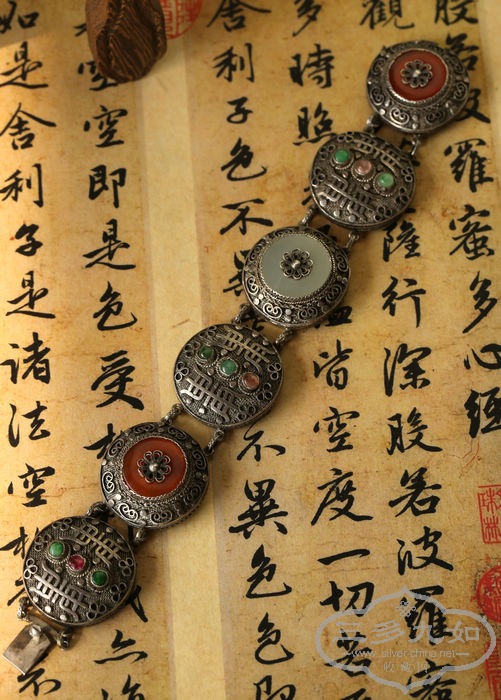 般若波羅蜜多心經
觀薩行深般若波羅
多時照皆空度一切
舍利子色不不異色色即
空空即是色受亦
如是舍利子是諸法空
三多九如
www.silver-china.net